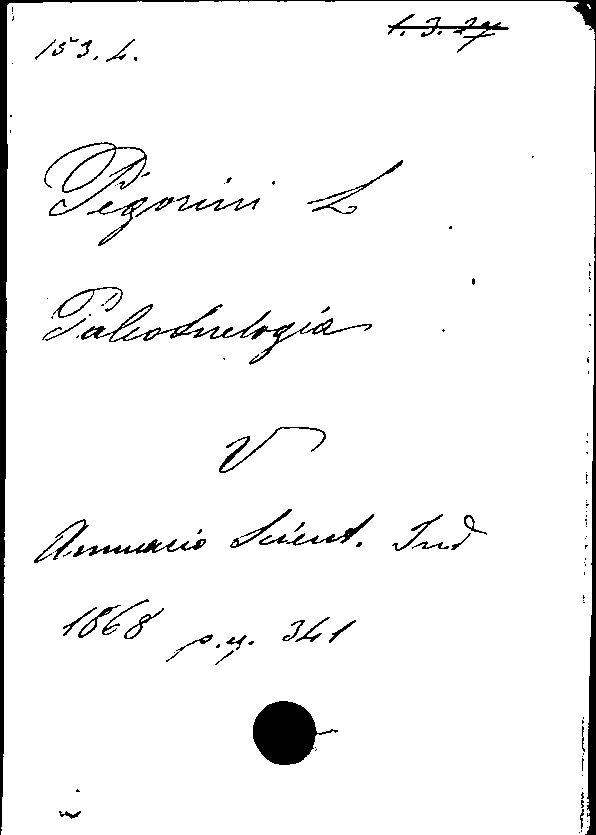 153. L. 1. 3. 27
Pigorini L
Paleoetnologia
V
Annuario Scient. Ind
1868 pag. 341